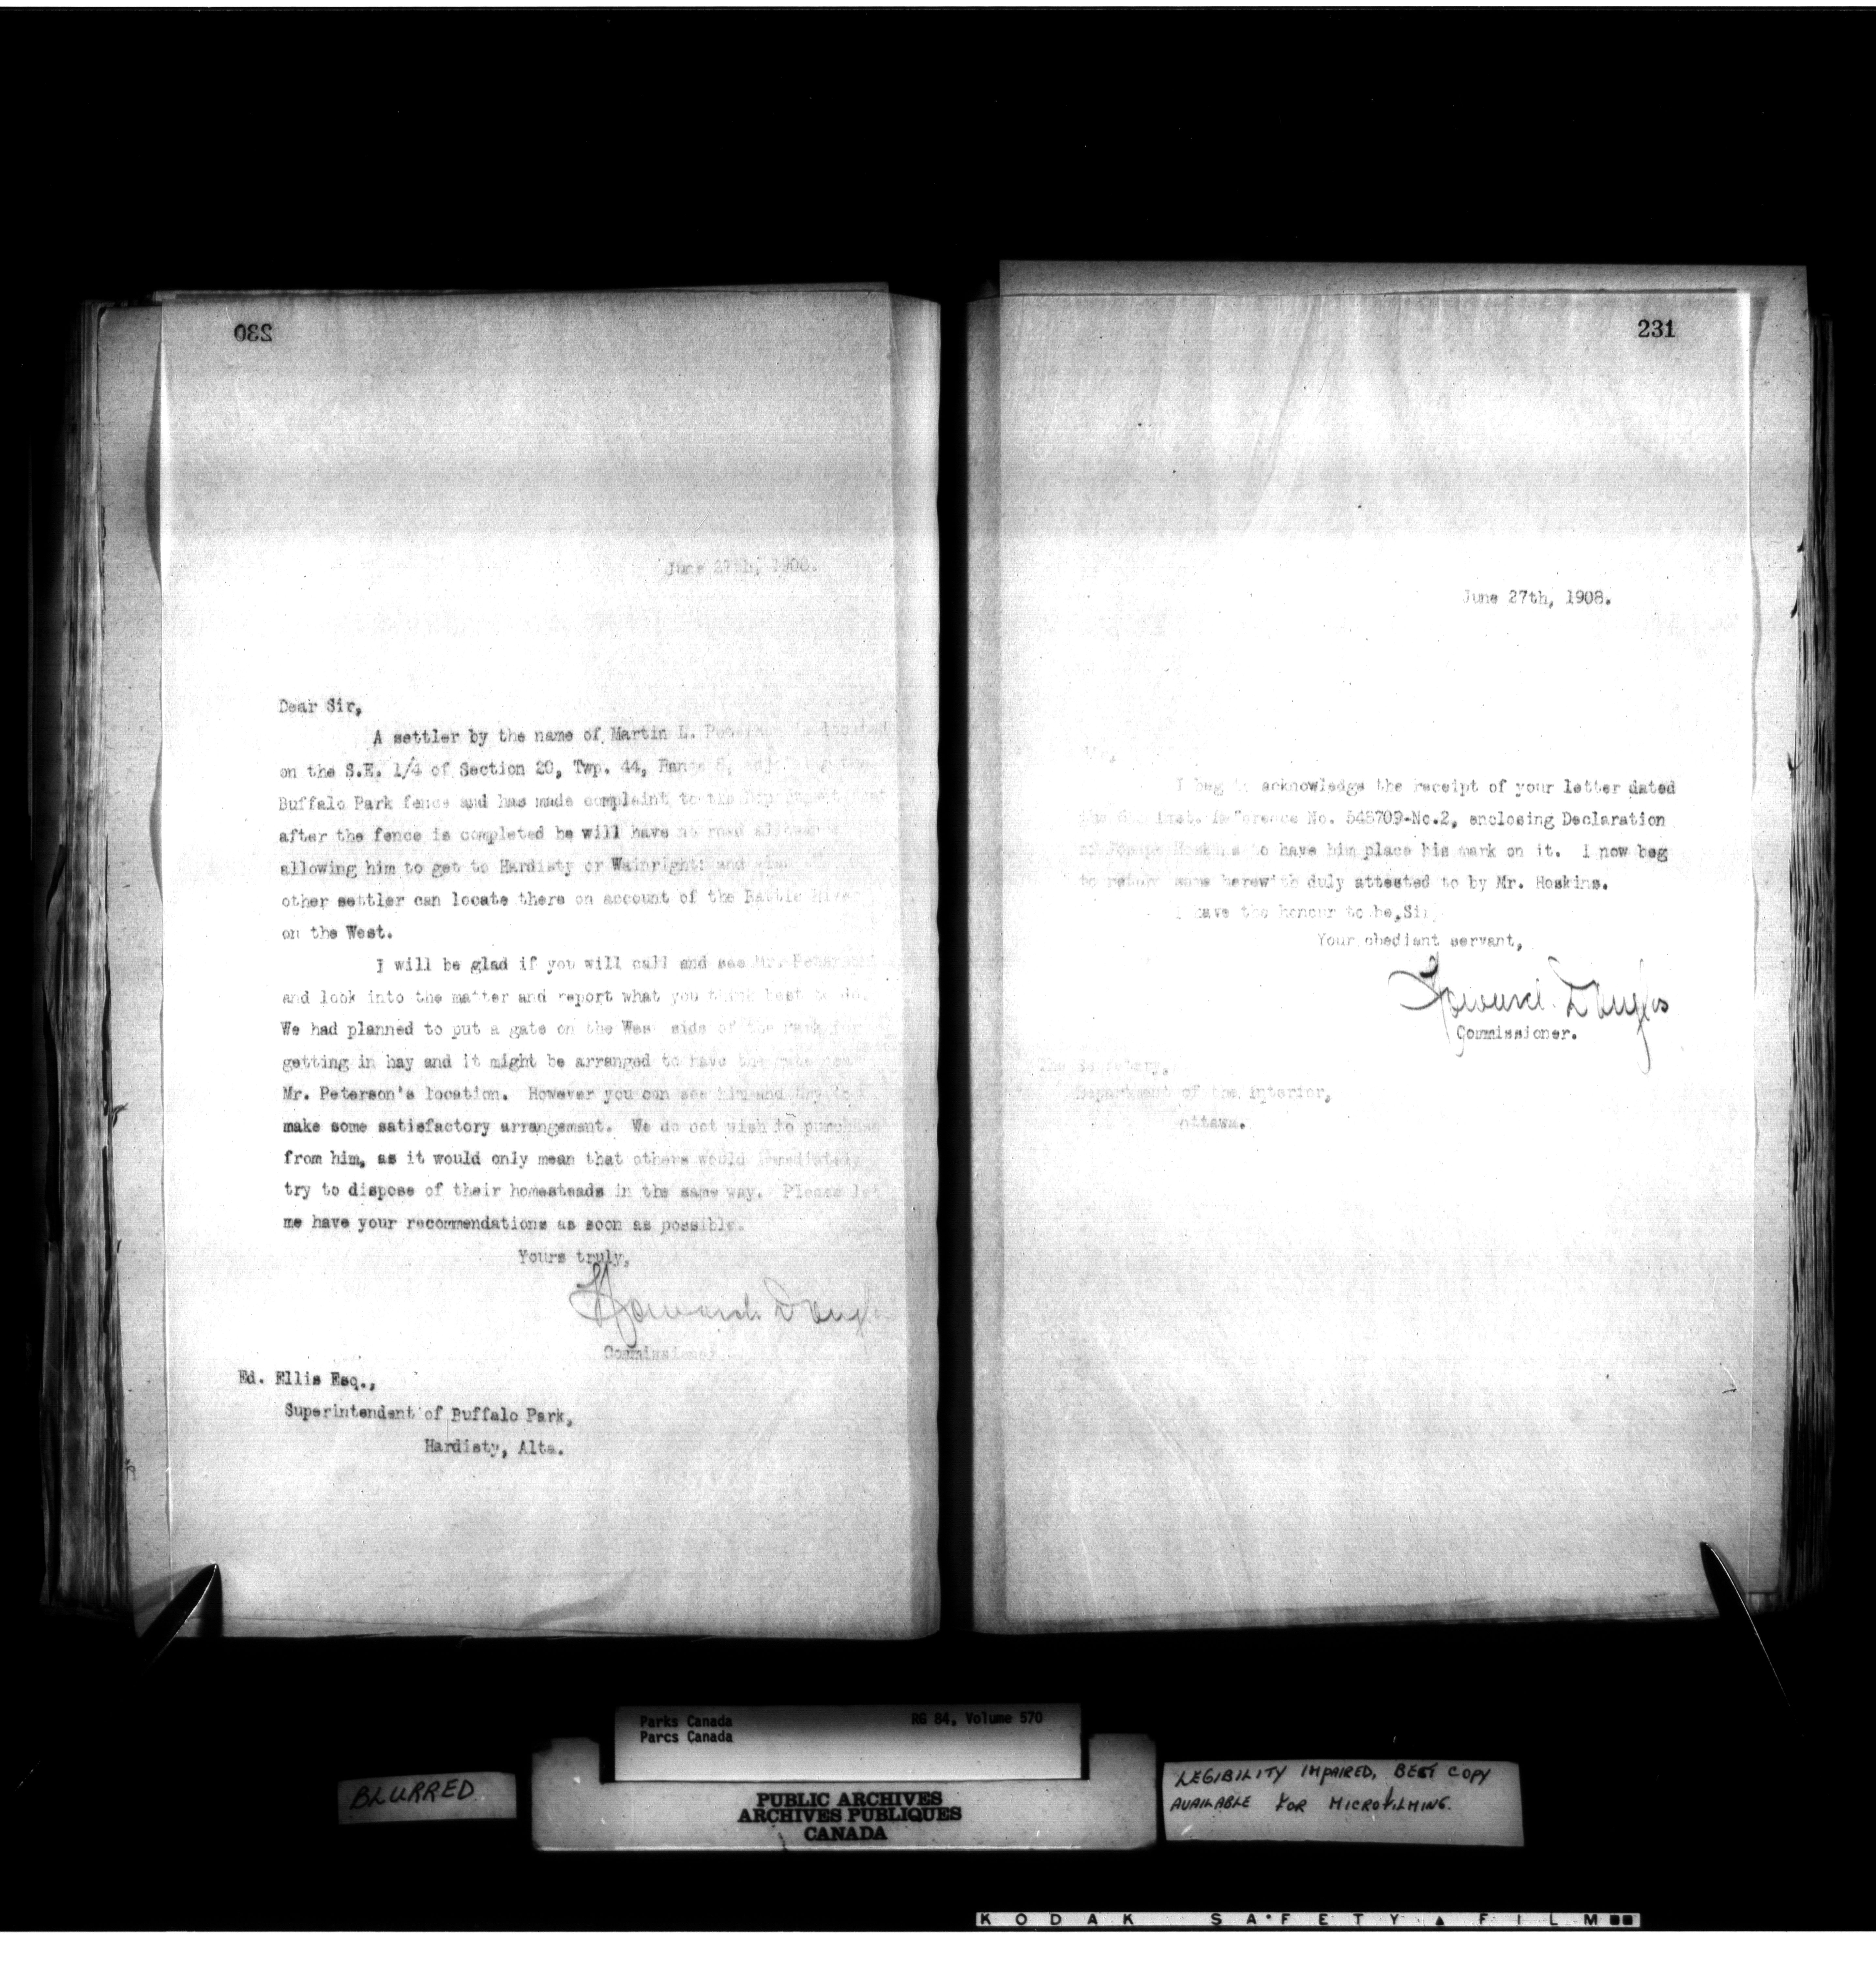 230
June 27th, 1908.
Dear Sir,
A settler by the name of Martin L. Peterson is located
on the S.E. 1/4 of Section 20, Twp. 44, Range
Buffalo Park fence and has made complaint to the Department that
after the fence is completed he will have no road allowance
allowing him to get to Hardisty or Wainright: and
other settler can locate there on account of the Battle River
on the West.
I will be glad if you will call and see Mr. Peterson
and look into the matter and report what you think best to do.
We had planned to put a gate on the West side of the Park for
getting in hay and it might be arranged to have the gate
Mr. Peterson's location. However you can see him and try to
make some satisfactory arrangement. We do not wish to purchase
from him, as it would only mean that others would immediately
try to dispose of their homesteads in the same way. Please let
me have your recommendations as soon as possible.
Yours truly,
Howard Douglas
Commissioner.
Ed. Ellis Esq.,
Superintendent of Buffalo Park,
Hardisty, Alta.
231
June 27th, 1908.
I beg to acknowledge the receipt of your letter dated
the Inst. Reference No. 545709-No.2, enclosing Declaration
of Joseph Hoskins to have him place his mark on it. I now beg
to return same herewith duly attested to by Mr. Hoskins.
I have the honour to be, Sir,
Your obedient servant,
Howard Douglas
Commissioner.
The Secretary,
Department of the Interior,
Ottawa.
Parks Canada
Parcs Canada
RG 84, Volume 570
BLURRED
PUBLIC ARCHIVES
ARCHIVES PUBLIQUES
CANADA
LEGIBILITY IMPAIRED, BEST COPY
AVAILABLE FOR MICROFILMING.
KODAK SAFETY FILM